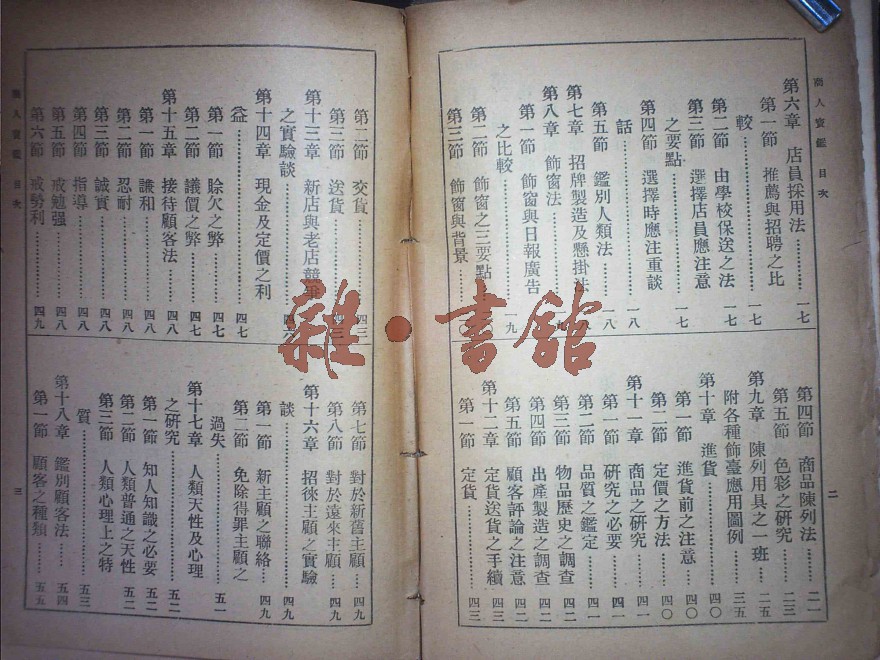 商人寶鑑 目次
第六章 店員採用法……一七
第一節 推薦與招聘之比
較……一七
第二節 由學校保送之法……一七
第三節 選擇店員應注意
之要點……一七
第四節 選擇時應注重談
話……一八
第五節 鑑別人類法……一八
第七章 招牌製造及懸掛法
第八章 飾窗法
第一節 飾窗與日報廣告
之比較……一九
第二節 飾窗之三要點
第三節 飾窗與背景
第四節 商品陳列法……二一
第五節 色彩之研究……二三
第九章 陳列用具之一班……二五
附各種飾臺應用圖例……三五
第十章 進貨……四〇
第一節 進貨前之注意……四〇
第二節 定價之方法……四〇
第十一章 商品之研究……四一
第一節 研究之必要……四一
第二節 品質之鑑定……四一
第三節 物品歷史之調查……四二
第四節 出產製造之調查……四二
第五節 顧客評論之注意……四二
第十二章 定貨送貨之手續……四三
第一節 定貨……四三
二
第二節 交貨……四三
第三節 送貨
第十三章 新店與老店競爭
之實驗談……四六
第十四章 現金及定價之利
益……四七
第一節 賒欠之弊……四七
第二節 議價之弊……四七
第十五章 接待顧客法……四八
第一節 謙和……四八
第二節 忍耐……四八
第三節 誠實……四八
第四節 指導……四八
第五節 戒勉强……四八
第六節 戒勢利……四九
商人寶鑑 目次
第七節 對於新舊主顧……四九
第八節 對於遠來主顧……四九
第十六章 招徠主顧之實驗
談……四九
第一節 新主顧之聯絡……四九
第二節 免除得罪主顧之
過失……五一
第十七章 人類天性及心理
之研究……五二
第一節 知人知識之必要……五二
第二節 人類普通之天性……五二
第三節 人類心理上之特
質……五三
第十八章 鑑別顧客法……五四
第一節 顧客之種類……五五
三
雜·書館